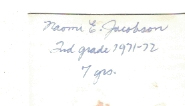 Naomi E. Jacobson
2nd grade 1971-72
7 yrs.